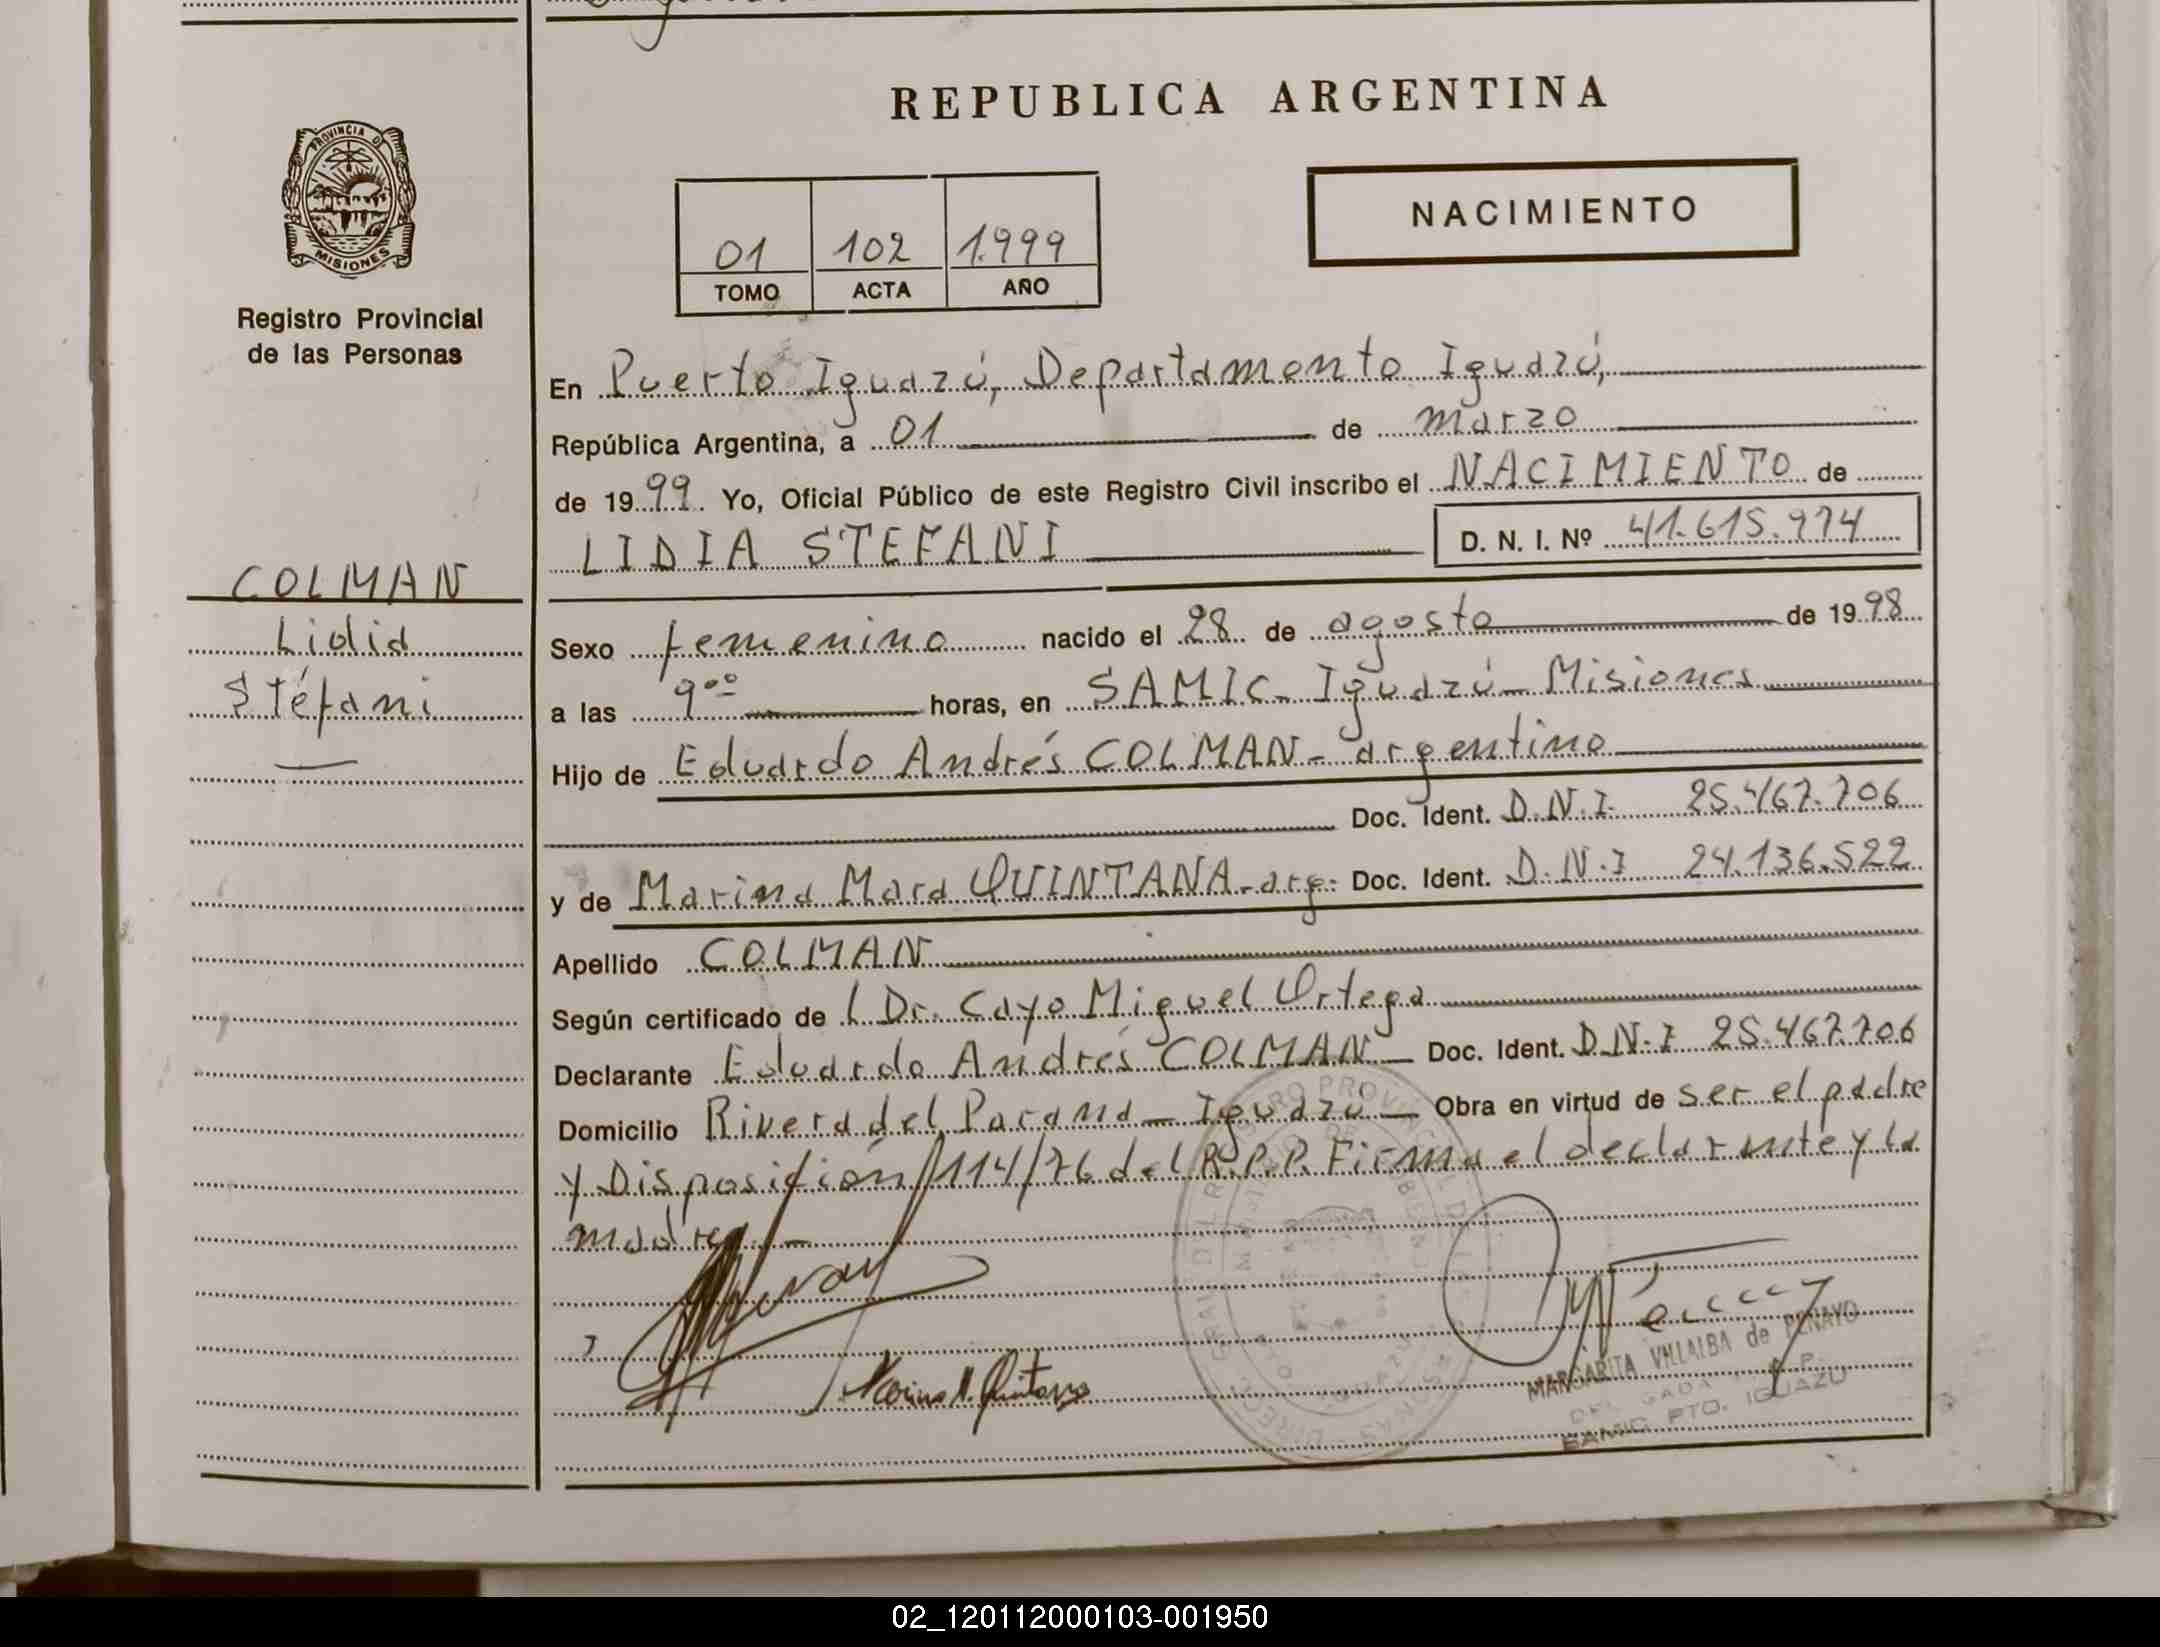 REPUBLICA ARGENTINA
PROVINCIA DE
MISIONES
NACIMIENTO
01 102 1.999
TOMO ACTA AÑO
Registro Provincial
de las Personas
En Puerto Iguazú, Departamento Iguazú,
República Argentina, a 01 de marzo
de 1999. Yo, Oficial Público de este Registro Civil inscribo el NACIMIENTO de
LIDIA STEFANI D. N. I. Nº 41.615.974
COLMAN
Lidia
Stéfani
Sexo femenino nacido el 28 de agosto de 1998
a las 9°° horas, en SAMIC- Iguazú- Misiones
Hijo de Eduardo Andrés COLMAN- argentino
Doc. Ident. D.N.I. 25.467.706
y de Marina Mara QUINTANA-arg- Doc. Ident. D.N.I 24.136.522
Apellido COLMAN
Según certificado de l Dr. Cayo Miguel Ortega
Declarante Eduardo Andrés COLMAN Doc. Ident. D.N.I 25.467.706
Domicilio Rivera del Parana- Iguazú Obra en virtud de ser el padre
y Disposición 114/76 del R.P.P. Firma el declarante y la
madre.-
Marina M. Quintana
MARGARITA VILLALBA de PENAYO
SAMIC PTO. IGUAZU
02_120112000103-001950